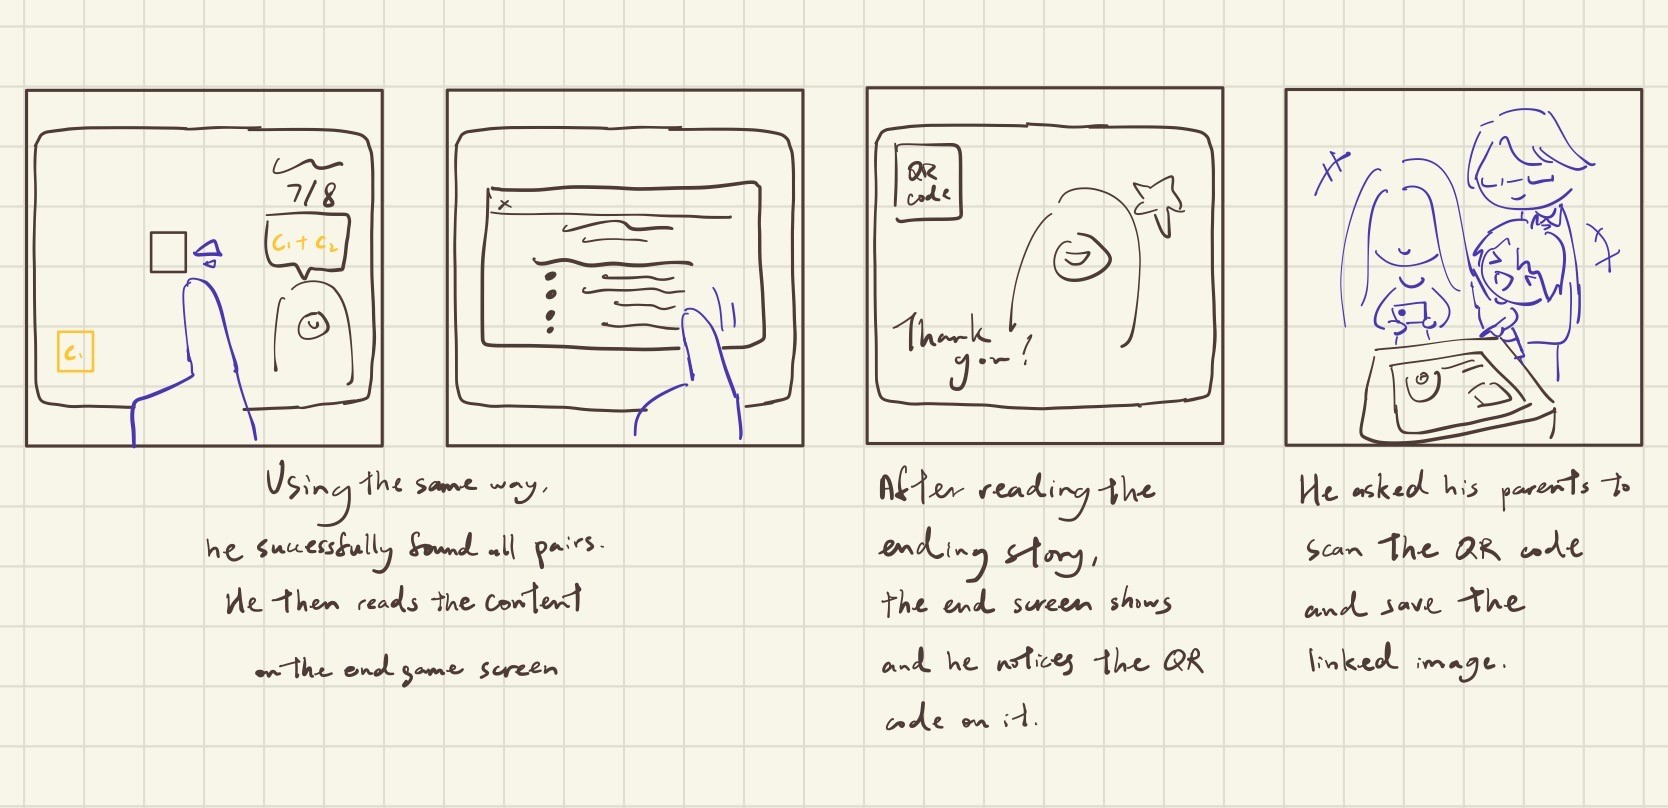 7/8
C₁ + C₂
C₁
x
QR
code
Thank
you!
Using the same way,
he successfully found all pairs.
He then reads the content
on the end game screen
After reading the
ending story,
the end screen shows
and he notices the QR
code on it.
He asked his parents to
scan the QR code
and save the
linked image.